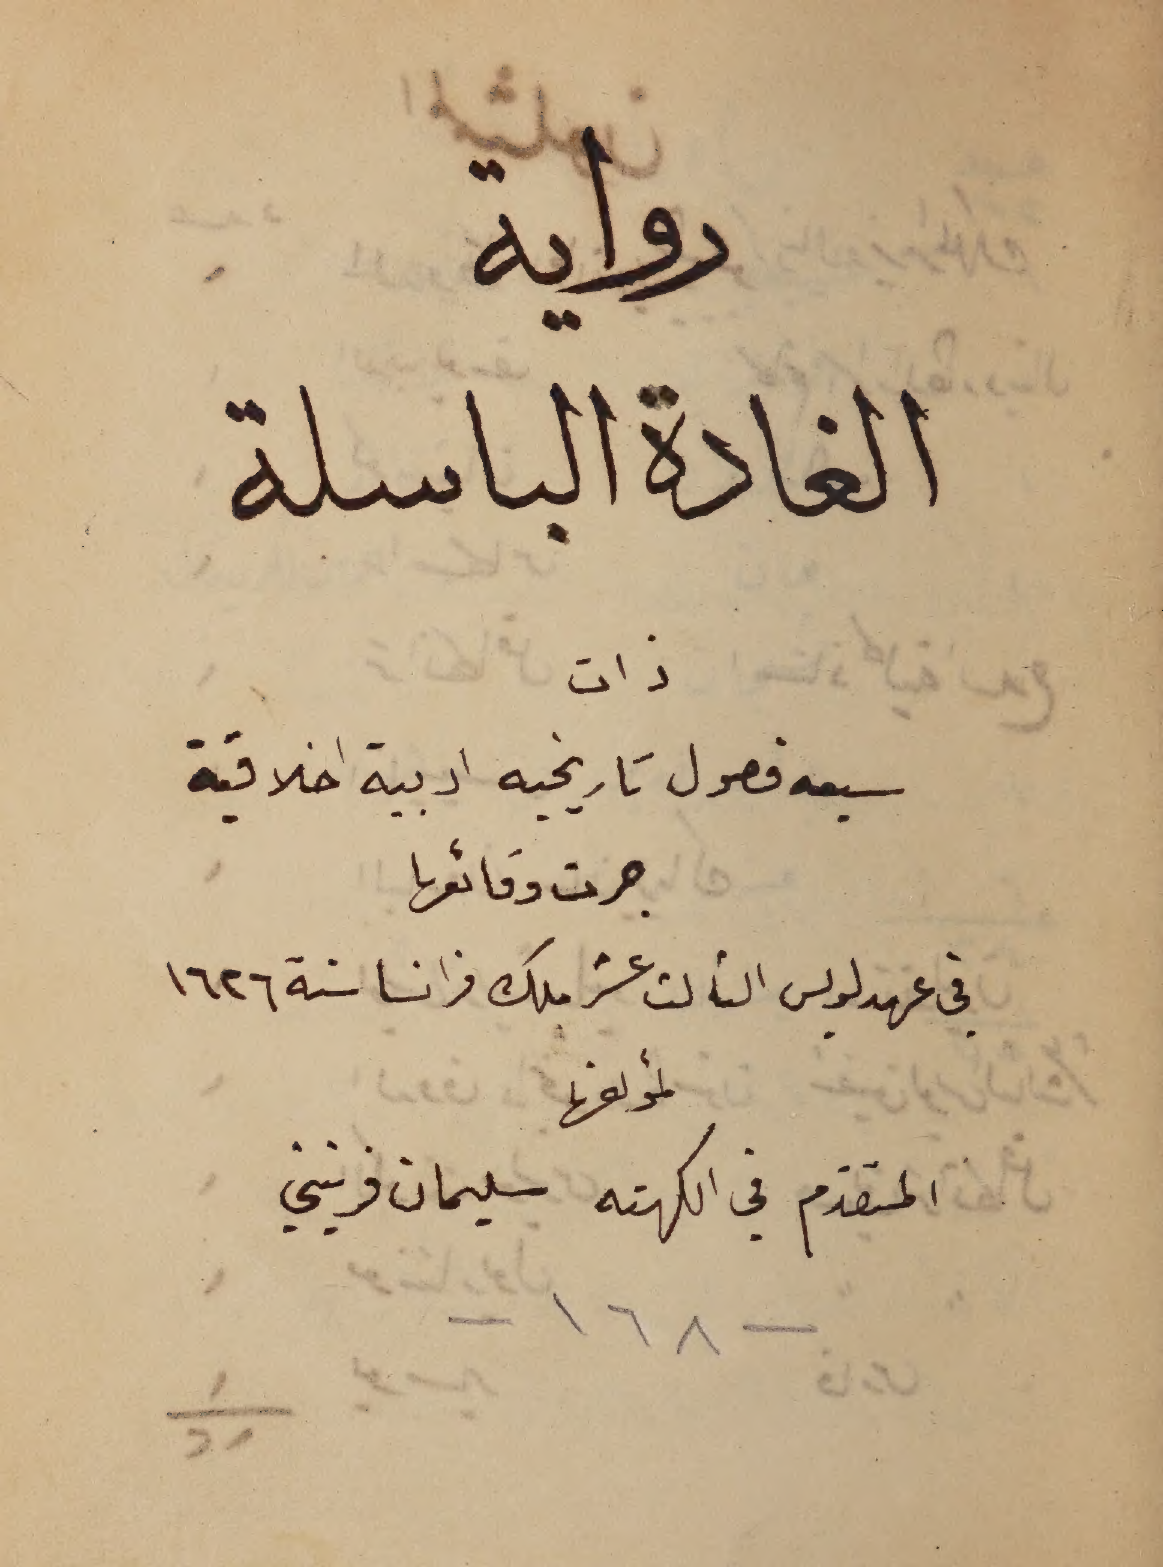 رواية
الغادة الباسلة
ذات
سبعه فصول تاريخيه ادبية اخلاقية
جرت وقائعها
في عهد لويس الثالث عشر ملك فرانسا سنة ١٦٢٦
لمؤلفها
المتقدّم في الكهنه سليمان فرينيني
— ١٦٨ —